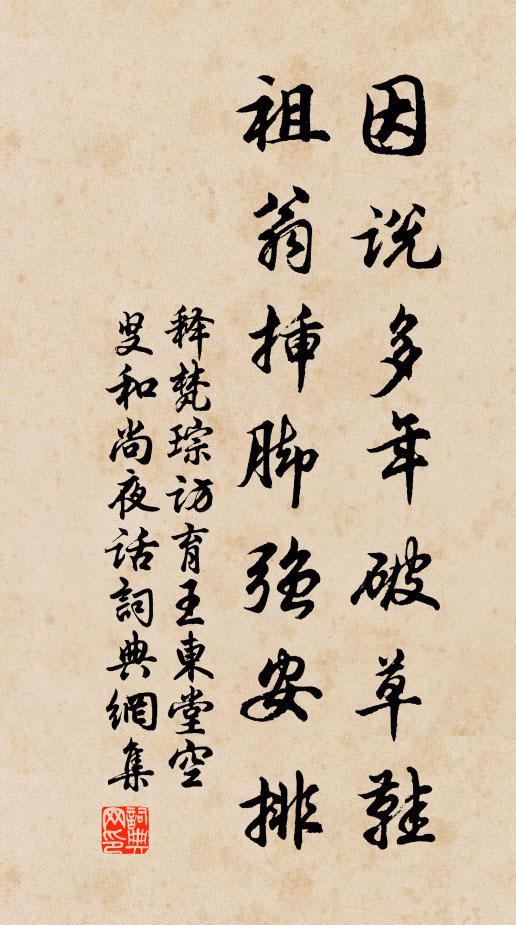 因说多年破草鞋
祖翁插脚强安排
释梵琮访育王東堂空
叟和尚夜话詞典網集
詞典网印